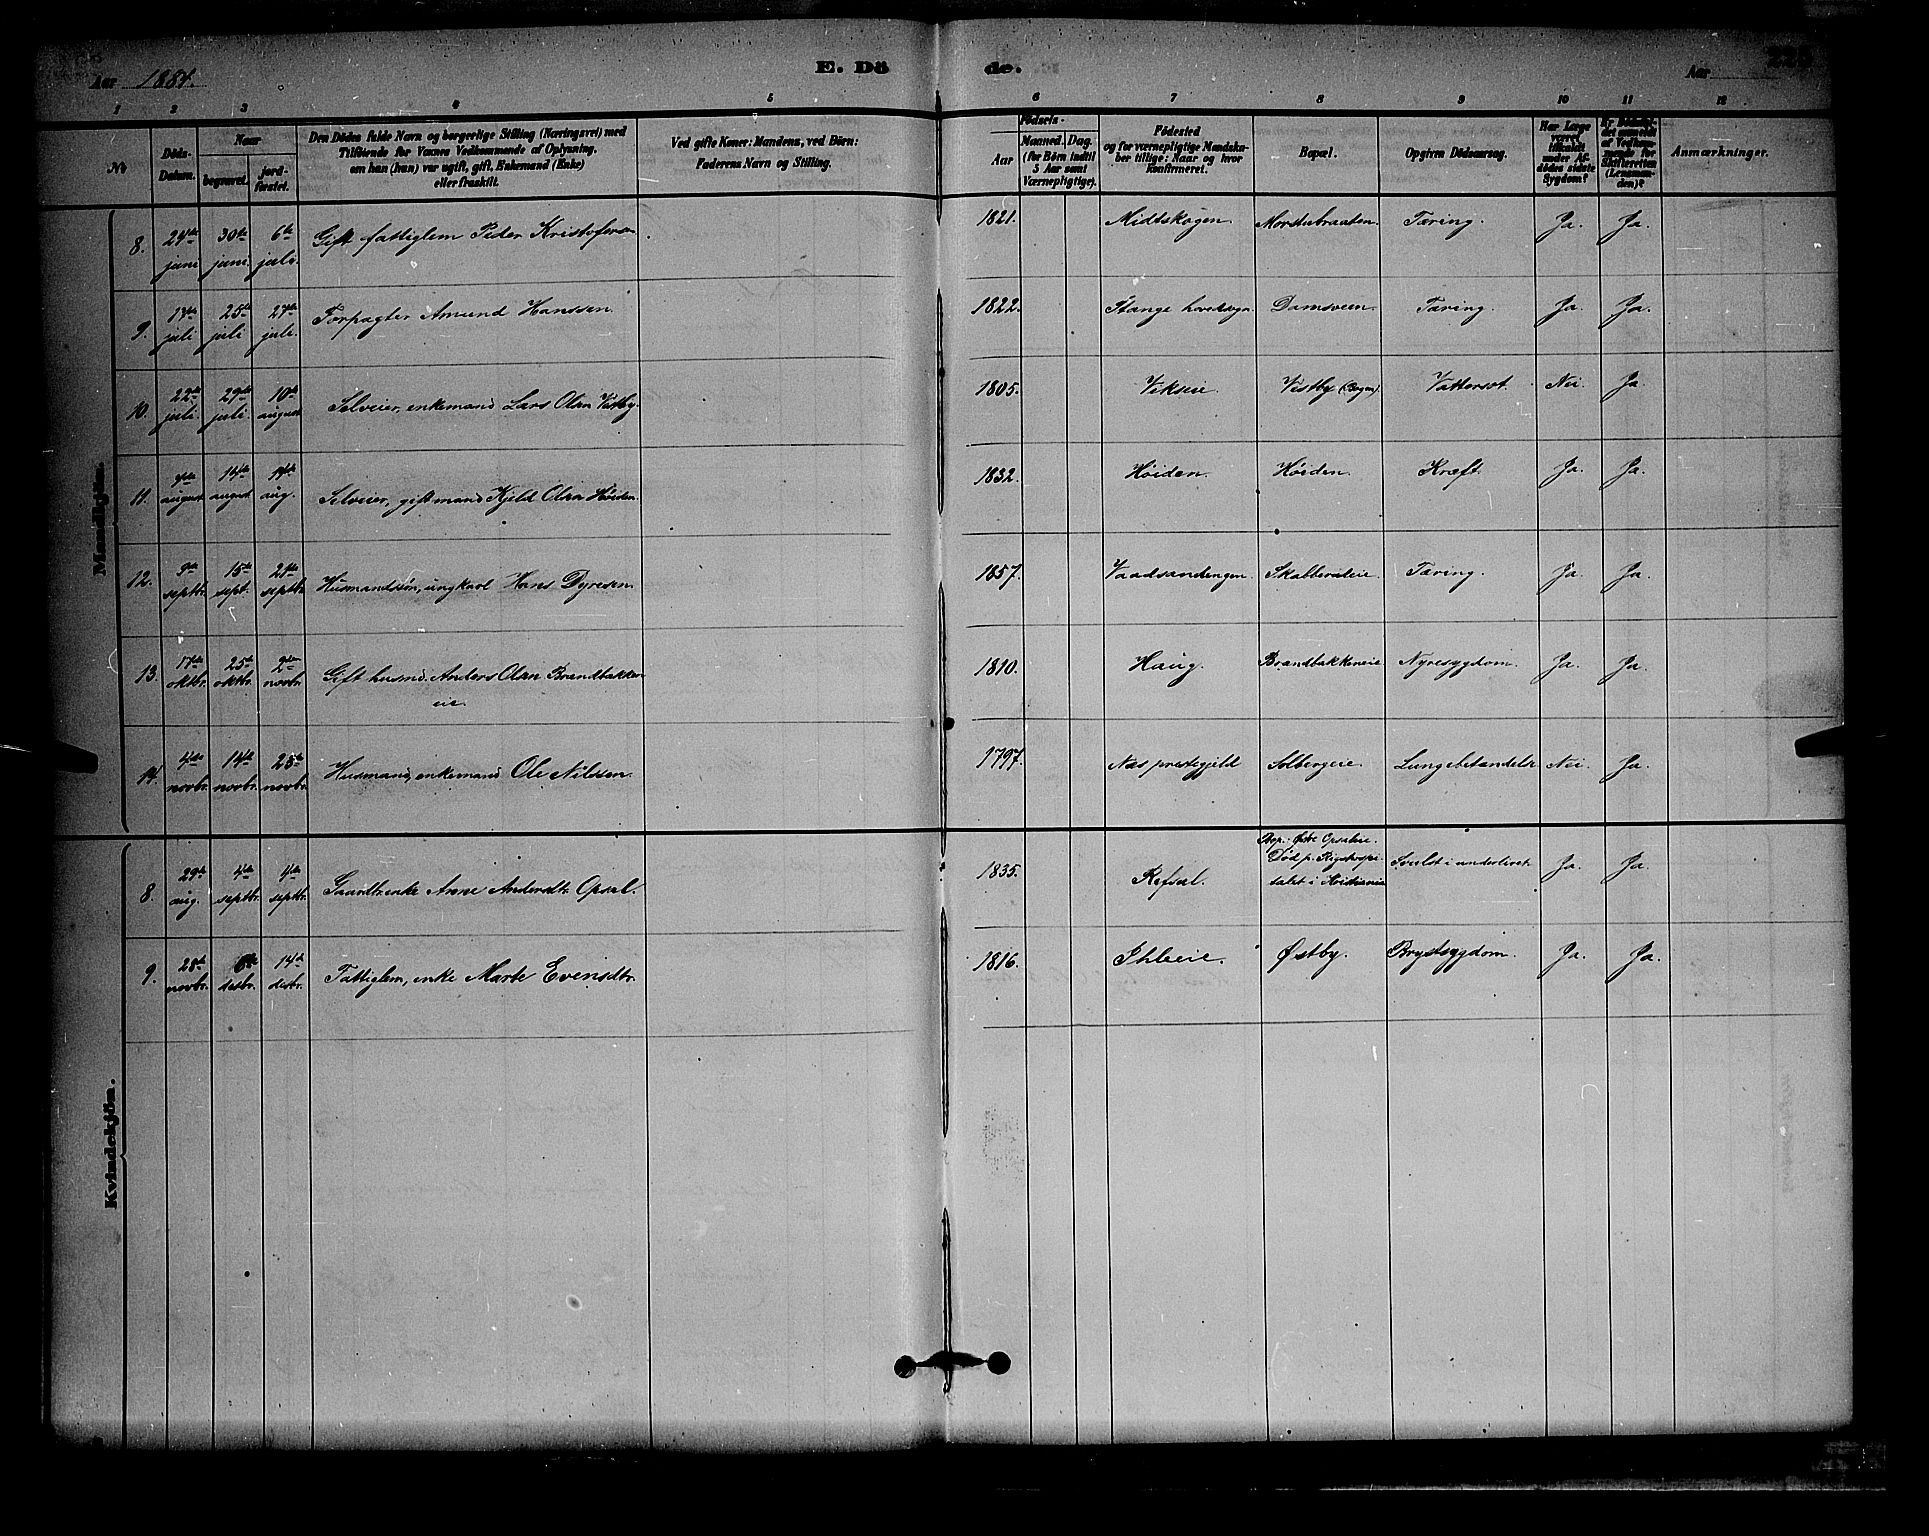 Aar 1884.
E. Dö de.
Aar
1 2 3 4 5 6 7 8 9 10 11 12
No
Döds-Datum.
Naar
begravet.
jord-fæstet.
Den Dödes fulde Navn og borgerlige Stilling (Næringsvei) med
Tilföiende for Voxnes Vedkommende af Oplysning,
om han (hun) var ugift, gift, Enkemand (Enke)
eller fraskilt.
Ved gifte Koner: Mandens, ved Börn:
Faderens Navn og Stilling.
Födsels-
Aar
Maaned. Dag.
(for Börn indtil
5 Aar samt
Værnepligtige).
Födested
og for værnepligtige Mandska-
ber tillige: Naar og hvor
konfirmeret.
Bopæl.
Opgiven Dödsaarsag.
Har Læge
været
tilkaldt
under Af-
dödes sidste
Sygdom?
Er Dödsfal-
det anmeldt
af Vedkom-
mende for
Skifteretten
(Lensman-
den)?
Anmærkninger.
Mandkjön.
8. 24de juni 30te juni. 6te juli. Gift fattiglem Peder Kristofersen 1821. Midtskogen. Morstubraaten. Tæring. Ja. Ja.
9. 17de juli 25de juli 27de juli. Forpagter Amund Hanssen. 1822. Stange hovedsogn Damsveen. Tæring. Ja. Ja.
10. 22de juli. 29de juli. 10de august Selveier, enkemand Lars Olsen Vestby. 1805. Vikseie. Vestby (Bogen). Vattersot. Nei. Ja.
11. 7de august 14de august 17de aug. Selveier, giftmand Kjeld Olsen Høiden. 1832. Høiden. Høiden. Kræft. Ja. Ja.
12. 9de septbr. 15de sept. 21de septbr. Husmandssøn, ungkarl Hans Dyresen. 1857. Vaadsandengen. Skabberudeie. Tæring. Ja. Ja.
13. 17de oktbr. 25de oktbr. 2den novbr. Gift husmd. Anders Olsen Brandbakken
eie. 1810. Haug. Brandbakkeneie Nyresygdom. Ja. Ja.
14. 4de novbr. 14de novbr. 25de novbr. Husmand, enkemand Ole Nilssen. 1797. Næs prestegjeld Solbergeie. Lungebetændelse Nei. Ja.
Kvindekjön.
8. 29de aug. 4de septbr. 4de septbr. Gaardbr.enke Anne Andersdtr. Opsal. 1835. Refsal. Bop. Østre Opsaleie.
Død p. Rigshospi
talet i Kristiania Svulst i underlivet Ja. Ja.
9. 28de novbr. 6te desbr. 14de desbr. Fattiglem, enke Marte Evensdtr. 1816. Ihleeie. Østby. Brystsygdom. Ja. Ja.